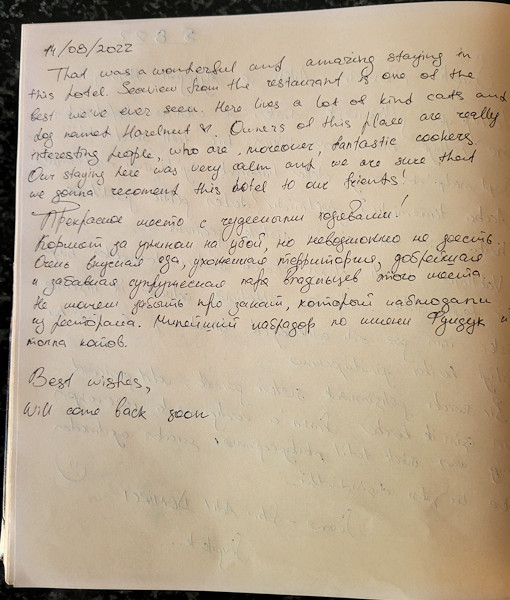 14/09/2022
That was a wonderful and amazing staying in
this hotel. Seaview from the restaurant is one of the
best we've ever seen. Here lives a lot of kind cats and
dog named Hazelnut ♡. Owners of this place are really
interesting people, who are, moreover, fantastic cookers.
Our staying here was very calm and we are sure that
we gonna recomend this hotel to our friends!
Прекрасное место с чудесными хозяевами!
Кормят за ужином на убой, но невозможно не доесть.
Очень вкусная еда, ухоженная территория, добрейшая
и забавная супружеская пара владельцев этого места.
Не можем забыть про закат, который наблюдали
из ресторана. Милейший лабрадор по имени Фундук и
толпа котов.
Best wishes,
Will come back soon